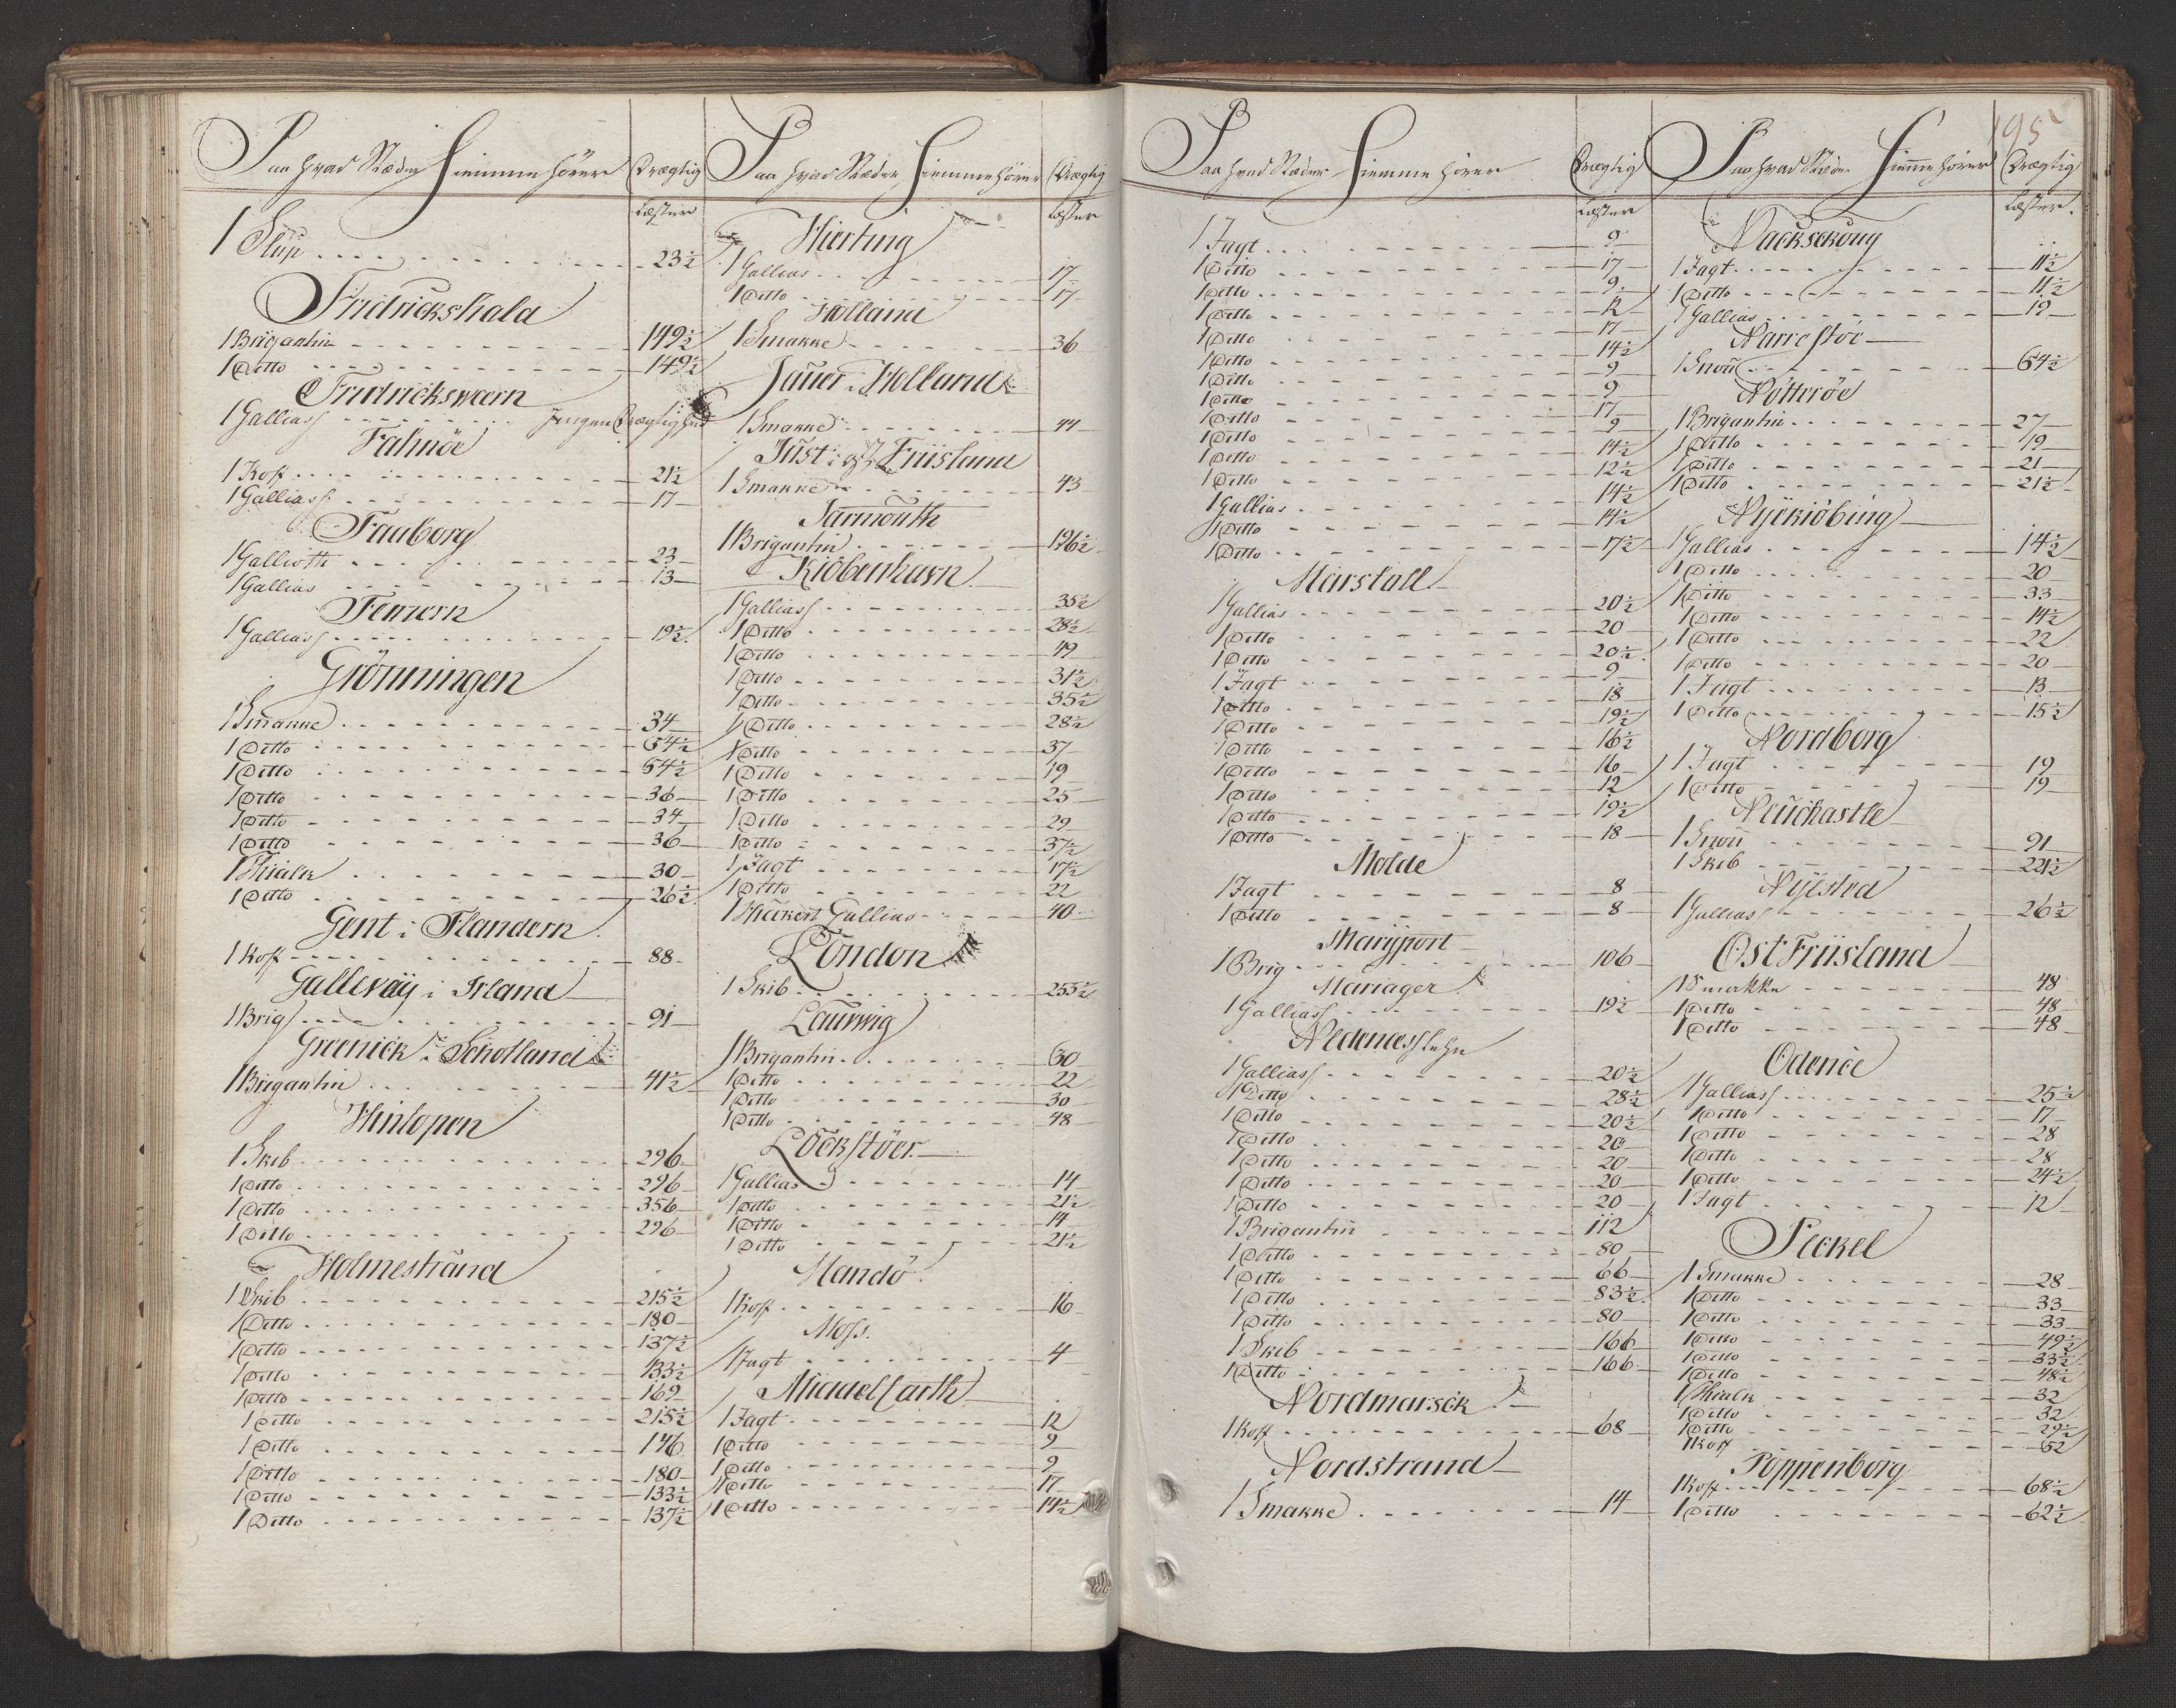 Paa hvad Stæder Hiemmehörer Drægtig
Læster
1 Slup 23½
Fridrickshald
1 Brigantin 149½
1 Ditto 149½
Fridrickswærn
1 Galliass Jngen Drægtighed
Falmöe
1 Koff 21½
1 Galliass 17
Faaborg
1 Gallioth 23
1 Gallias 13
Femern
1 Galliass 19½
Grönningen
1 Smakke 34
1 Ditto 54½
1 Ditto 54½
1 Ditto 36
1 Ditto 34
1 Ditto 36
1 Thialk 30
1 Ditto 26½
Gent i Flandern
1 Koff 88
Gallevaÿ i Irland
1 Brig 91
Greenick i Schotland
1 Brigantin 41½
Hinlopen
1 Skib 296
1 Ditto 296
1 Ditto 356
1 Ditto 296
Holmestrand
1 Skib 215½
1 Ditto 180
1 Ditto 137½
1 Ditto 133½
1 Ditto 169
1 Ditto 215½
1 Ditto 146
1 Ditto 180
1 Ditto 133½
1 Ditto 137½
Paa hvad Stæder Hiemmehörer Drægtig
Læster
Hierting
1 Gallias 17
1 Ditto 17
Holland
1 Smakke 36
Jauer i Holland
1 Smakke 44
Just i Ost Friisland
1 Smakke 43
Jarmouth
1 Brigantin 126½
Kiöbenhavn
1 Galliass 35½
1 Ditto 28½
1 Ditto 49
1 Ditto 31½
1 Ditto 35½
1 Ditto 28½
1 Ditto 37
1 Ditto 19
1 Ditto 25
1 Ditto 29
1 Ditto 37½
1 Jagt 17½
1 Ditto 22
1 Huckert Gallias 40
London
1 Skib 255½
Laurwig
1 Brigantin 60
1 Ditto 22
1 Ditto 30
1 Ditto 48
Löckstöer
1 Gallias 14
1 Ditto 21½
1 Ditto 14
1 Ditto 21½
Mandö
1 Koff 16
Moss
1 Jagt 4
Middelfarth
1 Jagt 12
1 Ditto 9
1 Ditto 9
1 Ditto 17
1 Ditto 14½
195
Paa hvad Stæder Hiemmehörer Drægtig
Læster
1 Jagt 9
1 Ditto 17
1 Ditto 9
1 Ditto 12
1 Ditto 17
1 Ditto 14½
1 Ditto 9
1 Ditto 9
1 Ditto 17
1 Ditto 9
1 Ditto 14½
1 Ditto 12½
1 Gallias 14½
1 Ditto 14½
1 Ditto 17½
Marstall
1 Gallias 20½
1 Ditto 20
1 Ditto 20½
1 Jagt 9
1 Ditto 18
1 Ditto 19½
1 Ditto 16½
1 Ditto 16
1 Ditto 12
1 Ditto 19½
1 Ditto 18
Molde
1 Jagt 8
1 Ditto 8
Marÿport
1 Brig 106
Mariager
1 Galliass 19½
Nedenæss Lehn
1 Galliass 20½
1 Ditto 28½
1 Ditto 20½
1 Ditto 20
1 Ditto 20
1 Ditto 20
1 Ditto 20
1 Brigantin 112
1 Ditto 80
1 Ditto 66
1 Ditto 83½
1 Ditto 80
1 Skib 166
1 Ditto 166
Nordmarsck
1 Koff 68
Nordstrand
1 Smakke 14
Paa hvad Stæder Hiemmehörer Drægtig
Læster
Nackschoug
1 Jagt 11½
1 Ditto 11½
1 Gallias 19
Narrestöe
1 Snou 64½
Nötteröe
1 Brigantin 27
1 Ditto 19
1 Ditto 21
1 Ditto 21½
Nyekiöbing
1 Gallias 14½
1 Ditto 20
1 Ditto 33
1 Ditto 14½
1 Ditto 22
1 Ditto 20
1 Jagt 13
1 Ditto 15½
Nordborg
1 Jagt 19
1 Ditto 19
Neuchastle
1 Snou 91
1 Skib 221½
Nÿested
1 Gallias 26½
Ost Friisland
1 Smakke 48
1 Ditto 48
1 Ditto 48
Odense
1 Galliass 25½
1 Ditto 17
1 Ditto 28
1 Ditto 28
1 Ditto 24½
1 Jagt 12
Peckel
1 Smakke 28
1 Ditto 33
1 Ditto 33
1 Ditto 49½
1 Ditto 33½
1 Ditto 48½
1 Thialk 32
1 Ditto 32
1 Ditto 29½
1 Koff 52
Poppenborg
1 Koff 68½
1 Ditto 62½